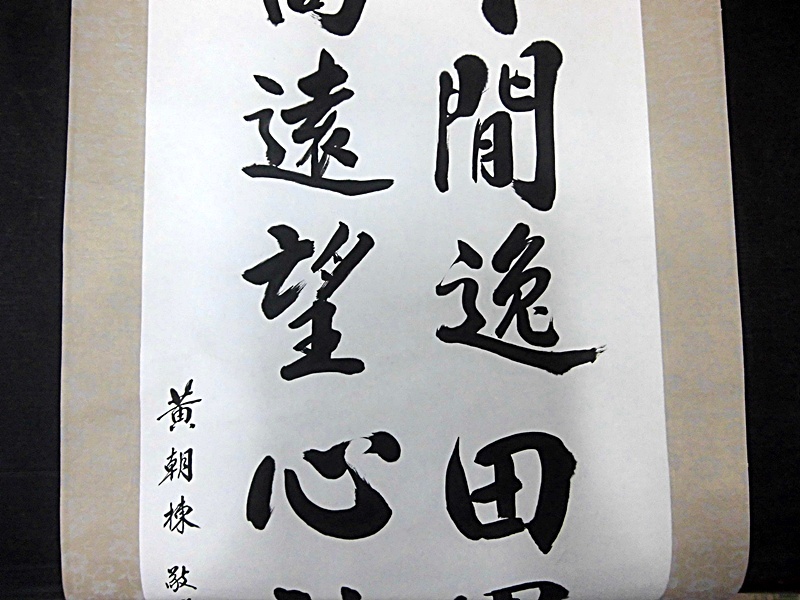 間逸田
遠望心
黄朝棟 敬